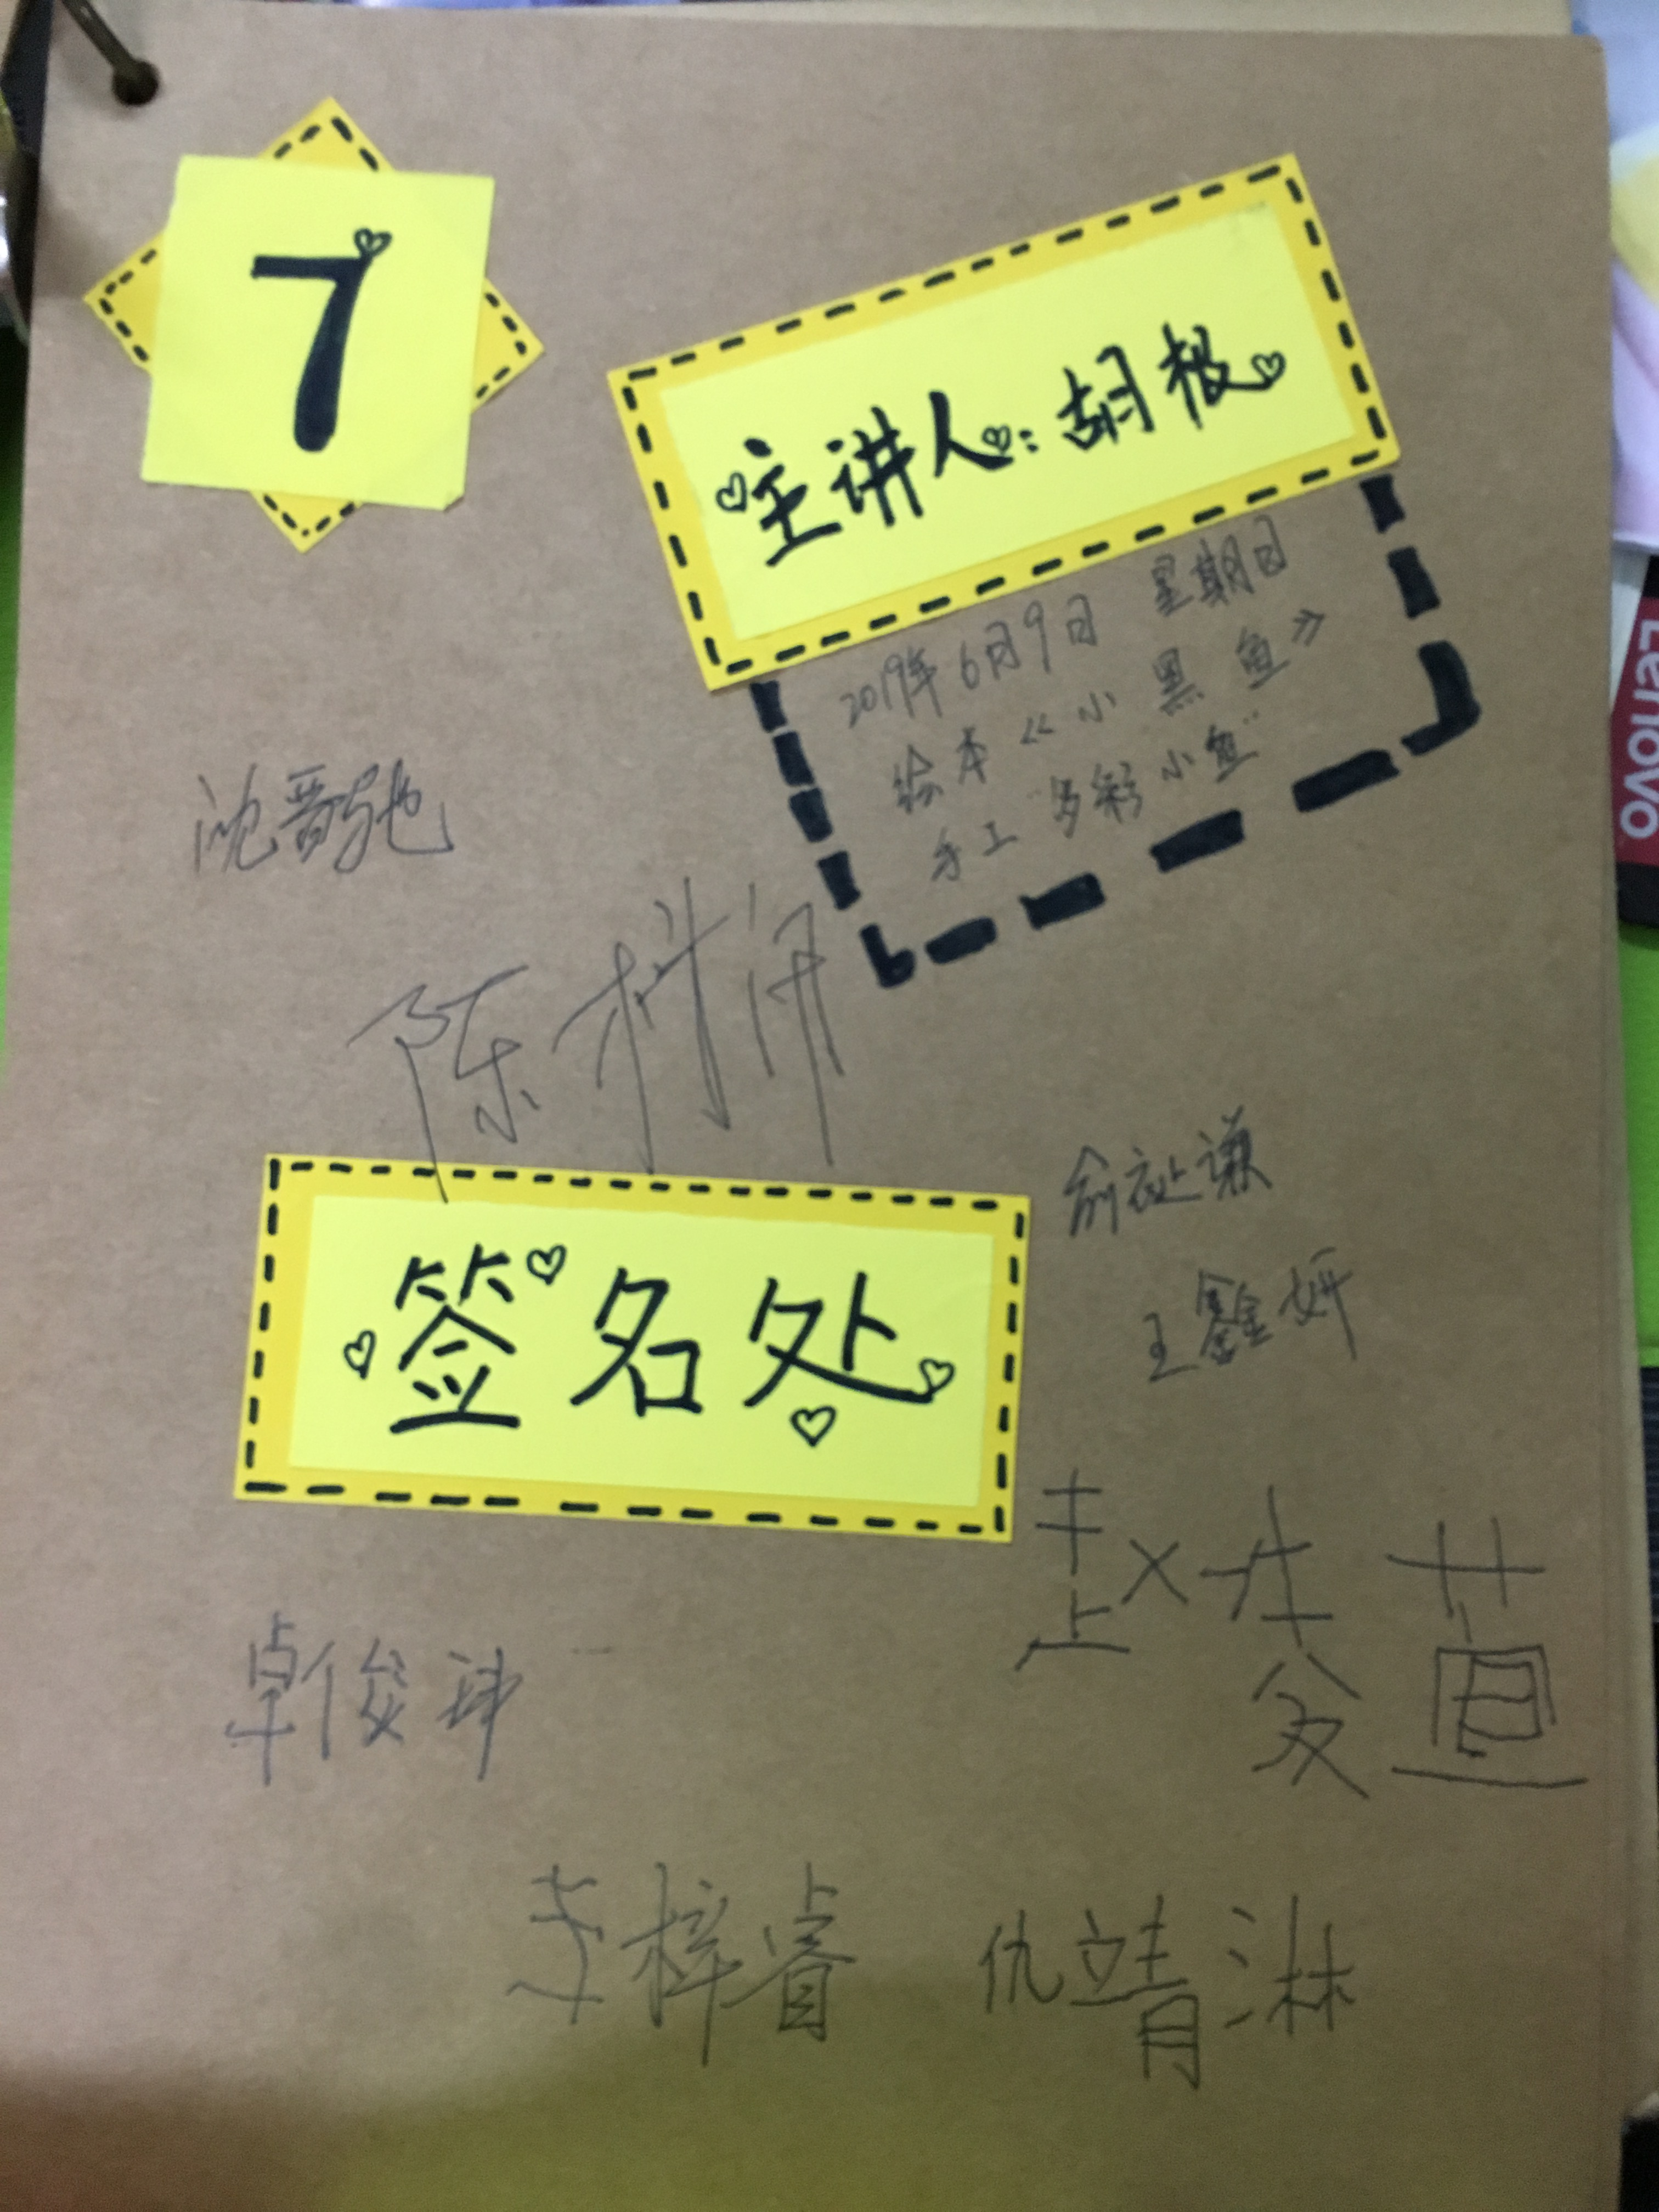 7
主讲人:胡极
2019年6月9日 星期日
绘本《小黑鱼》
手工“多彩小鱼”
沈晋驰
陈
签名处
俞祉谦
王鑫妍
卓俊
梓睿
仇靖淋
Lenovo